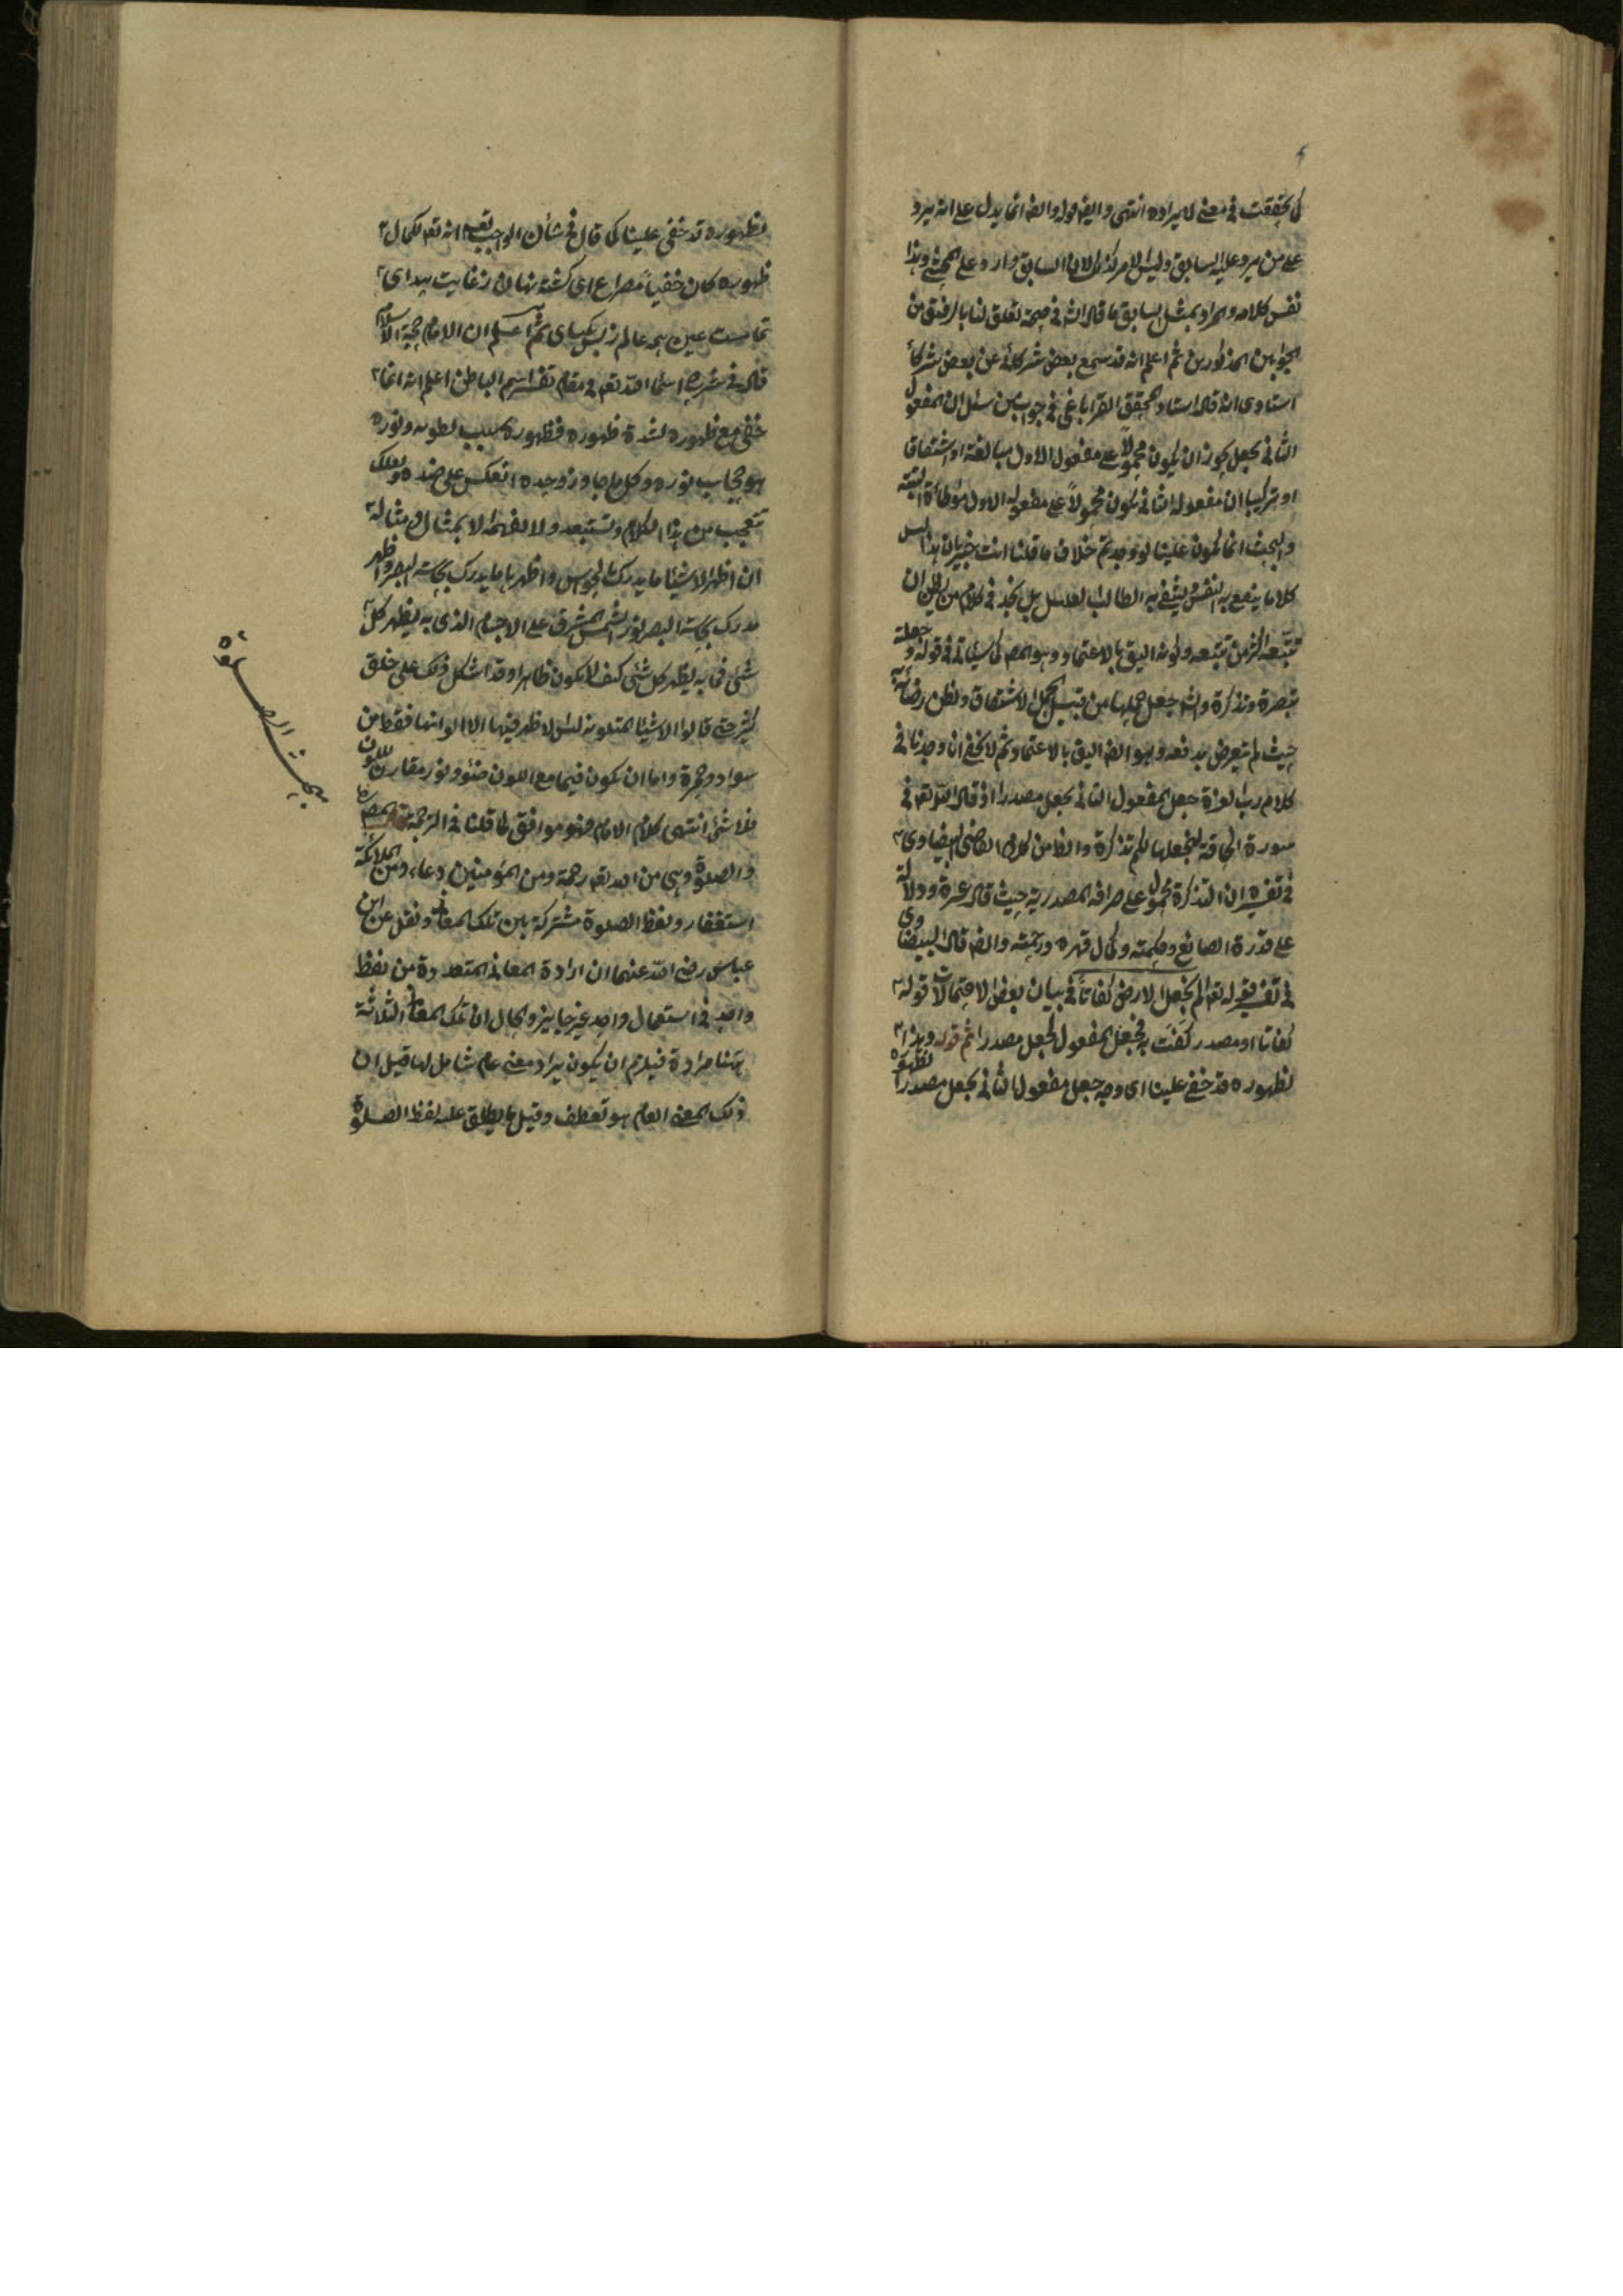 كما تحققت في معنى لا يراده انتهى وايضا قوله وايضا انما يدل على انه يرد
على من يرد عليه السابق وليس الامر كذلك لان السابق وارد على المحشي وهذا
نفس كلامه والمراد بمثل السابق ما قال الشه في صحة تعلق لنا بالرفيق من
الجوابين المذكورين ثم اعلم انه قد سمع بعض شركائه عن بعض شركاء
استادي انه قال استاد المحقق القراباغي في جواب من سئل ان المفعول
الثاني لجعل يجوز ان يكون محمولاً على مفعول الاول مبالغة او اشتقاقا
او تركيبا ان مفعوله الثاني يكون محمولاً على مفعوله الاول مواطاة البتة
والبحث انما يكون علينا لو وجدتم خلاف ما قلنا انت خبير بان هذا ليس
كلاما ينفع به النفس يشفي به الطالب العليل بل نجد في كلام من يظن ان
تتبعه اكثر من تتبعه وكونه اليق بالاعتماد وهو المص كما سيأتي في قوله وجعلته
تبصرة وتذكرة والشه جعل حملها من قبيل الحمل الاشتقاق ونظن رضائه
حيث لم يتعرض بدفعه وهو ايضا اليق بالاعتماد ثم لا يخفى انا وجدنا في
كلام رب العزة جعل المفعول الثاني لجعل مصدرا اذ قال الله تعه في
سورة الحاقة لنجعلها لكم تذكرة وايضا من كلام القاضي البيضاوي
في تفسيره ان التذكرة محمول على صرافة المصدرية حيث قال عبرة ودلالة
على قدرة الصانع وحكمته وكمال قهره ورحمته وايضا قال البيضاوي
في تفسير قوله تعه الم نجعل الارض كفاتاً في بيان بعض الاحتمالات قوله
كفاتا او مصدر كفت به فجعل المفعول لجعل مصدرا ثم قوله وهذا لظهوره
لظهوره قد خفي علينا اي وجه جعل مفعول الثاني لجعل مصدرا
لظهوره قد خفي علينا كما قال في شأن الواجب تعه انه تعه لكمال
ظهوره كان خفياً مصراع اي كشته نهان از غايت پيدايى
تماست عين همه عالم ز بس يكتايى ثم اعلم ان الامام حجة الاسلام
قال في شرح اسماء الله تعه في مقام تفسير اسم الباطن اعلم انه انما
خفي مع ظهوره لشدة ظهوره فظهوره سبب لبطونه ونوره
هو حجاب نوره وكل ما جاوز وحده انعكس على ضده ولعلك
تتعجب من هذا الكلام وتستبعد ولا تفهمه الا بمثال مثاله
ان اظهر الاشيئا ما يدرك بالحواس واظهرها ما يدرك بحاسة البصر واظهر
مدرك بحاسة البصر نور الشمس المشرق على الاجسام الذي به يظهر كل
شئ فما به يظهر كل شئ كيف لا يكون ظاهرا وقد اشكل ذلك على خلق
كثير حتى قالوا الاشيئا المتلونة ليس لا ظهر فيها الا الوانها فقط من
سواد وحمرة واما ان يكون فيها مع اللون ضوء ونور مقارن للون
فلا شئ انتهى كلام الامام فهو موافق لما قلنا في الترجمة قال المص
والصلوة وهي من الله تعه رحمة ومن المؤمنين دعاء ومن الملائكة
استغفار ولفظ الصلوة مشتركة بين تلك المعاني ونقل عن ابن
عباس رضي الله عنهما ان ارادة المعاني المتعددة من لفظ
واحد في استعمال واحد غير جايز والحال ان تلك المعاني الثلاثة
ههنا مرادة فيلزم ان يكون يراد معنى عام شامل لها قيل ان
ذلك المعنى العام هو تعطف وقيل ما يطلق عليه لفظ الصلوة
بحث الصلوة